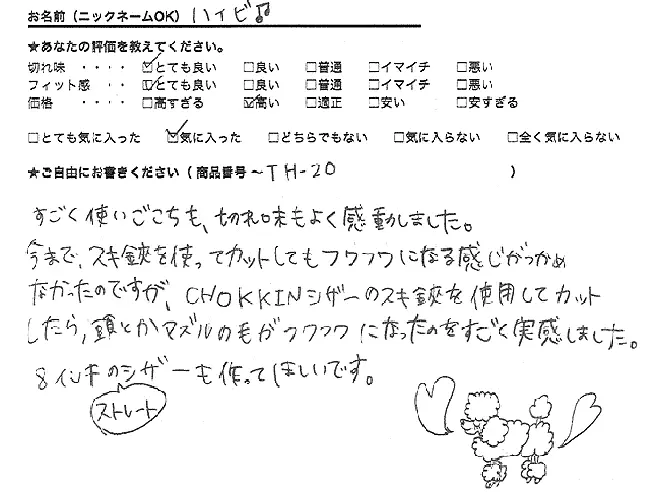 お名前（ニックネームOK） ハイビ♫
★あなたの評価を教えてください。
切れ味 ・・・・ ☑とても良い □良い □普通 □イマイチ □悪い
フィット感 ・・ ☑とても良い □良い □普通 □イマイチ □悪い
価格 ・・・・ □高すぎる ☑高い □適正 □安い □安すぎる
□とても気に入った ☑気に入った □どちらでもない □気に入らない □全く気に入らない
★ご自由にお書きください（商品番号～TH-20 ）
すごく使いごこちも、切れ味もよく感動しました。
今まで、スキ鋏を使ってカットしてもフワフワになる感じがつかめ
なかったのですが、CHOKKINシザーのスキ鋏を使用してカット
したら、頭とかマズルの毛がフワフワになったのをすごく実感しました。
8インチのシザーも作ってほしいです。
ストレート